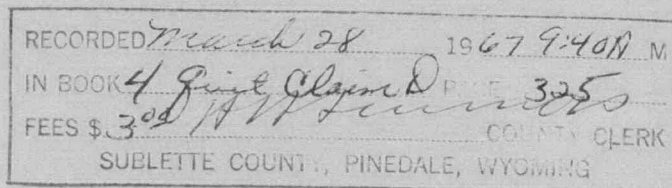 RECORDED March 28 1967 9:40A M
IN BOOK 4 Quit Claim D PAGE 325
FEES $ 3.00 COUNTY CLERK
SUBLETTE COUNTY, PINEDALE, WYOMING